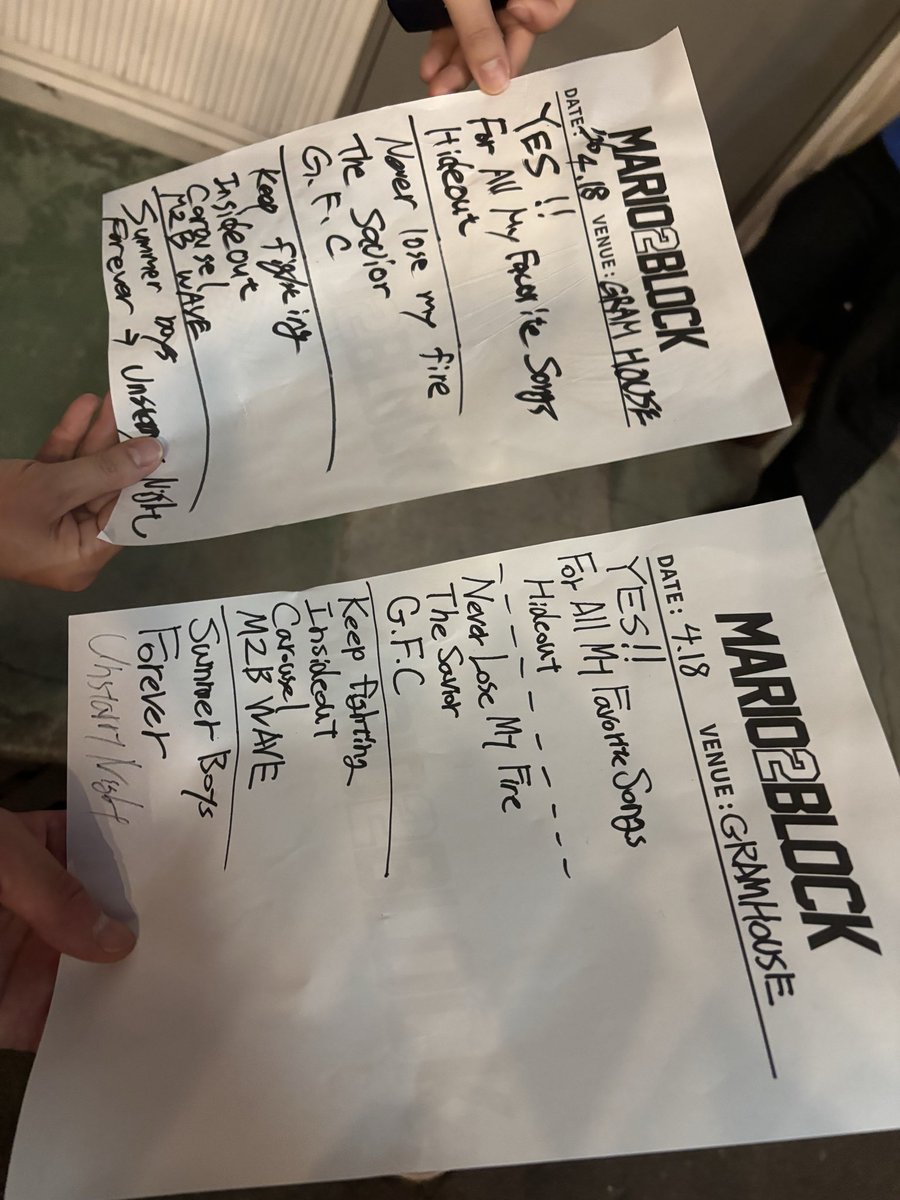 MARIO2BLOCK
DATE: 4.18 VENUE: GRAM HOUSE
YES!!
For All My Favorite Songs
Hideout
Never lose my fire
The Savior
G.F.C
Keep fighting
Insideout
Carousel
M2B WAVE
Summer boys
Forever
MARIO2BLOCK
DATE: 4.18 VENUE: GRAMHOUSE
YES!!
For All My Favorite Songs
Hideout
Never Lose My Fire
The Savior
G.F.C
Keep fighting
Insideout
Carousel
M2B WAVE
Summer Boys
Forever
Unstarry Night